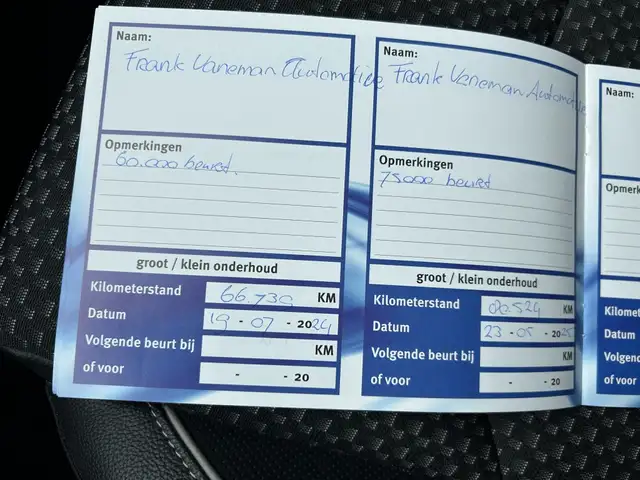 Naam:
Frank Vaneman Automotive
Opmerkingen
60.000 beurt.
groot / klein onderhoud
Kilometerstand 66.730 KM
Datum 19 - 07 - 2024
Volgende beurt bij KM
of voor - - 20
Naam:
Frank Vaneman Automotive
Opmerkingen
75000 beurt
groot / klein onderhoud
Kilometerstand KM
Datum 23 - 05 - 2025
Volgende beurt bij KM
of voor - - 20
Naam:
Opmerk
Kilomet
Datum
Volgend
of voor